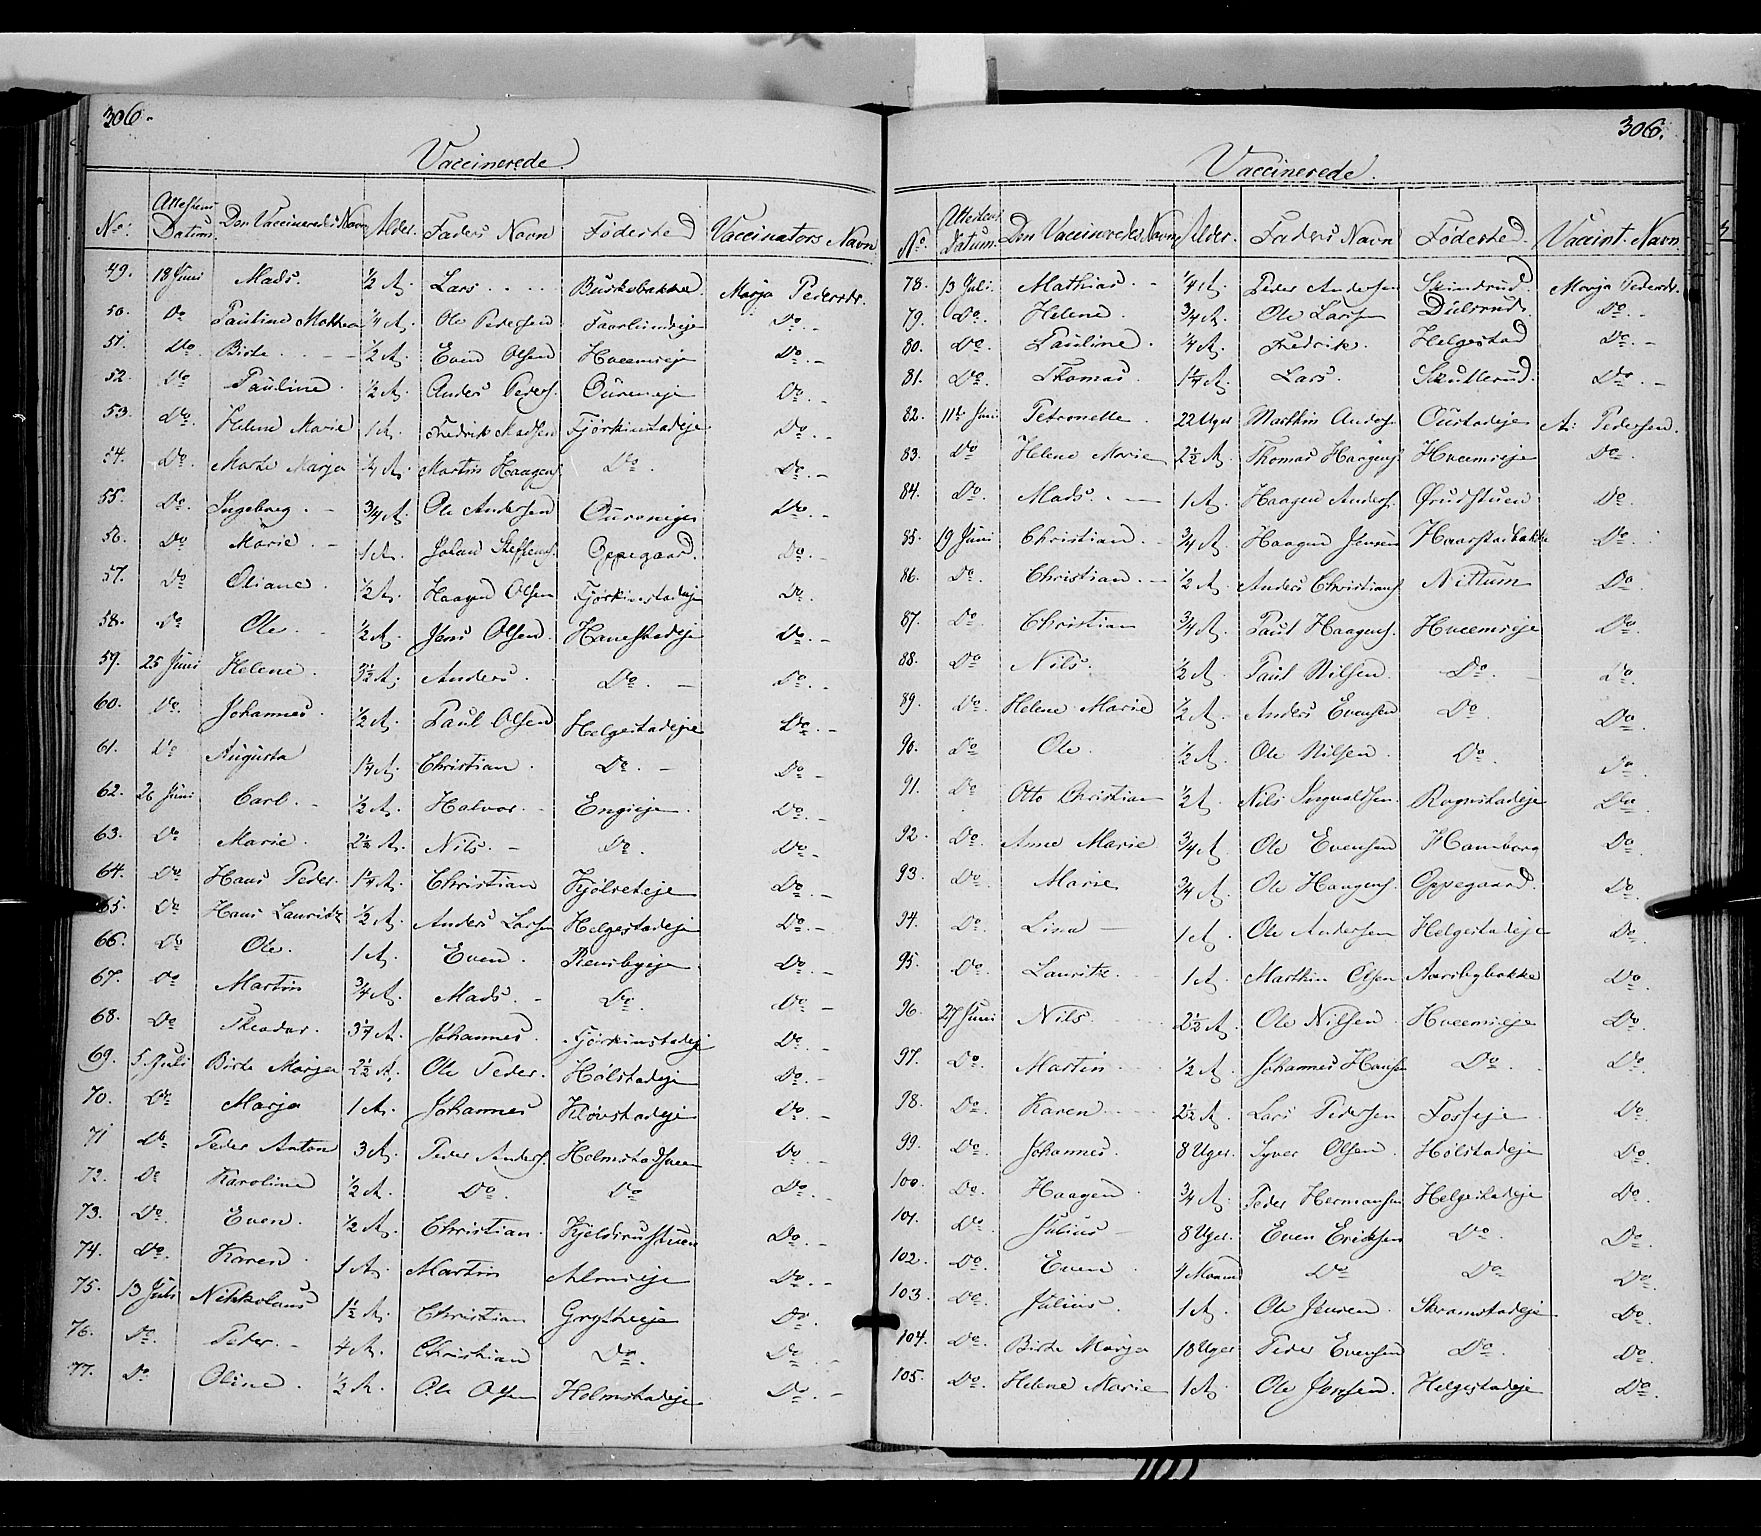 306.
Vaccinerede.
No. Attestens Datum. Den Vaccineredes Navn Alder. Faders Navn Fødested Vaccinators Navn
49. 18 Juni Mads. ½ A. Lars Buskebakken. Marja Pedersdr.
50. Do Pauline Mathea ¼ A. Ole Pedersen Faarlundeje Do.
51. Do. Birte ½ A. Even Olsen Hveemseje Do.
52. Do Pauline. ½ A. Anders Peders. Oureneje Do.
53. Do. Helene Marie 1 A. Fredrik Madsen Fjørkinstadeje Do.
54. Do. Marte Marja ¼ A. Martin Haagens. Do. Do.
55. Do. Ingeborg. ¾ A. Ole Andersen Oureneje Do.
56. Do Marie. 1 A. Johan Steffens. Oppegaard. Do.
57. Do Oliane. ½ A. Haagen Olsen Fjørkinstadeje Do.
58. Do Ole. ½ A. Jens Olsen. Hanestadeje Do.
59. 25 Juni Helene. 3½ A. Anders. Do. Do.
60. Do. Johannes. ½ A. Paul Olsen Helgestadeje Do.
61. Do Augusta 1¼ A. Christian. Do. Do
62. 26 Juni Carl. ½ A. Halvor. Engseje Do.
63. Do Marie. 2½ A. Nils. Do. Do.
64. Do Hans Peder. 1¼ A. Christian Kjølseteje Do.
65. Do. Hans Lauritz ½ A. Anders Larsen Helgestadeje Do.
66. Do Ole. 1 A. Even. Rensbyeje Do.
67. Do Martin ¾ A. Mads. Do. Do.
68. Do. Theodor. 3¼ A. Johannes. Fjørkinstadeje Do.
69. 5. Juli Birte Marja 2½ A. Ole Peder. Hølstadeje Do.
70. Do. Marja 1 A. Johannes Kløvstadeje Do.
71 Do. Peder Anton 3 A. Peder Anders. Holmstadsveen Do.
72. Do Karoline ½ A. Do. Do Do.
73. Do. Even. ½ A. Christian. Kjeldsrustuen Do.
74. Do. Karen. 1 A. Martin Almseje Do.
75. 13 Juli Nikkolaus 1½ A. Christian Grytheeje Do.
76. Do. Peder. 4 A. Christian Do. Do.
77. Do. Oline. ½ A. Ole Olsen Holmstadeje Do.
306.
Vaccinerede.
No. Attestens Datum. Den Vaccineredes Navn Alder. Faders Navn Fødested. Vaccint. Navn
78. 13 Juli. Mathias. ¼ A. Peder Andersen Skinderud. Marja Pedersdr.
79. Do. Helene. ¾ A. Ole Larsen Dulsrud. Do.
80. Do. Pauline. ¼ A. Fredrik. Helgestad Do.
81. Do. Thomas. 1¼ A. Lars. Skutterud. Do.
82. 11te Juni Petronelle. 22 Uger Marthin Anders. Oustadeje A: Pedersen.
83. Do Helene Marie 2½ A. Thomas Haagens. Hveemseje Do.
84. Do. Mads. 1 A. Haagen Anders. Ørudstuen Do.
85. 19 Juni Christian. ¾ A. Haagen Jensen Haarstadbakke Do.
86. Do. Christian. ½ A. Anders Christians. Nittum Do.
87. Do Christian ¾ A. Paul Haagens. Hveemseje Do.
88. Do Nils. ½ A. Paul Nilsen. Do. Do.
89. Do. Helene Marie ½ A. Anders Evensen Do Do.
90. Do Ole. ½ A. Ole Nilsen. Do. Do.
91. Do Otto Christian ½ A. Nils Ingvaldsen. Rognstadeje Do.
92. Do. Anne Marie ¾ A. Ole Evensen Hamborg Do.
93. Do. Marie ¾ A. Ole Haagens. Oppegaard. Do.
94. Do. Lina 1 A. Ole Andersen Helgestadeje Do.
95. Do. Lauritz. 1 A. Marthin Olsen Aarsbybakke Do.
96. 27 Juni Nils 2½ A. Ole Nilsen. Hveemseje Do.
97. Do. Martin ½ A. Johannes Hans. Do. Do.
98. Do. Karen 2½ A. Lars Pedersen Fosseje Do.
99. Do. Johannes. 8 Uger. Syver Olsen. Hølstadeje Do.
100. Do. Haagen. ¾ A. Peder Hermansen Helgestadeje Do.
101. Do. Julius 8 Uger. Even Eriksen Do. Do.
102. Do. Even 4 Maaned Do Do Do.
103. Do. Julius. 1 A. Ole Jensen. Skramstadeje Do.
104. Do. Birte Marja 18 Uger Peder Evensen Do. Do.
105. Do. Helene Marie 1 A. Ole Jensen. Helgestadeje Do.